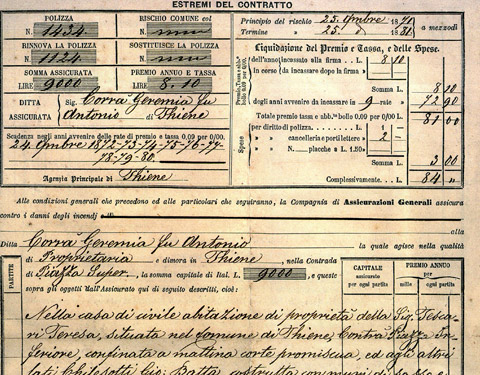 ESTREMI DEL CONTRATTO
POLIZZA
N. 1434.
RISCHIO COMUNE col
N.
RINNOVA LA POLIZZA
N. 1124.
SOSTITUISCE LA POLIZZA
N.
SOMMA ASSICURATA
LIRE 9000
PREMIO ANNUO E TASSA
LIRE 8.10
DITTA ASSICURATA
Sig. Corrà Geremia fu
Antonio di Thiene
Scadenza negli anni avvenire delle rate di premio e tassa 0.09 per 0/00
24 Ombre 1872-73-74-75-76-77-
78-79-80.
Agenzia Principale di Thiene
Principio del rischio 25. Ombre 18
a mezzodì
Termine 25. 18
Liquidazione del Premio e Tassa, e delle Spese.
Premio, Tassa abb. bollo 0.09 per 0/00.
dell'anno incassato alla firma L. 8.10
in corso da incassare dopo la firma
Somma L. 8.10
degli anni avvenire da incassare in 9 rate » 72.90
Totale premio tassa e abb. bollo 0.09 per 0/00 L. 81.00
Spese
per diritto di polizza L. 1
» cancelleria e porti lettere » 2
» N. placche a L. 1.50 »
Somma L. 3.00
Complessivamente, L. 84
Alle condizioni generali che precedono ed alle particolari che seguiranno, la Compagnia di Assicurazioni Generali assicura
contro i danni degli incendj
alla
Ditta Corrà Geremia fu Antonio
la quale agisce nella qualità
di Proprietaria e dimora in Thiene, nella Contrada
di Piazza Super. la somma capitale di Ital. L. 9000, e queste
sopra gli oggetti dall'Assicurato qui di seguito descritti, cioè:
PARTITE
CAPITALE
assicurato
per ogni partita
PREMIO ANNUO
per
mille
per ogni partita
Nella casa di civile abitazione di proprietà della Sig. Tesca-
ri Teresa, situata nel Comune di Thiene, Contrà Piazza In-
feriore, confinata a mattina corte promiscua, ed agli altri
lati Chilesotti Gio. Batta, costrutta con muri di sasso e